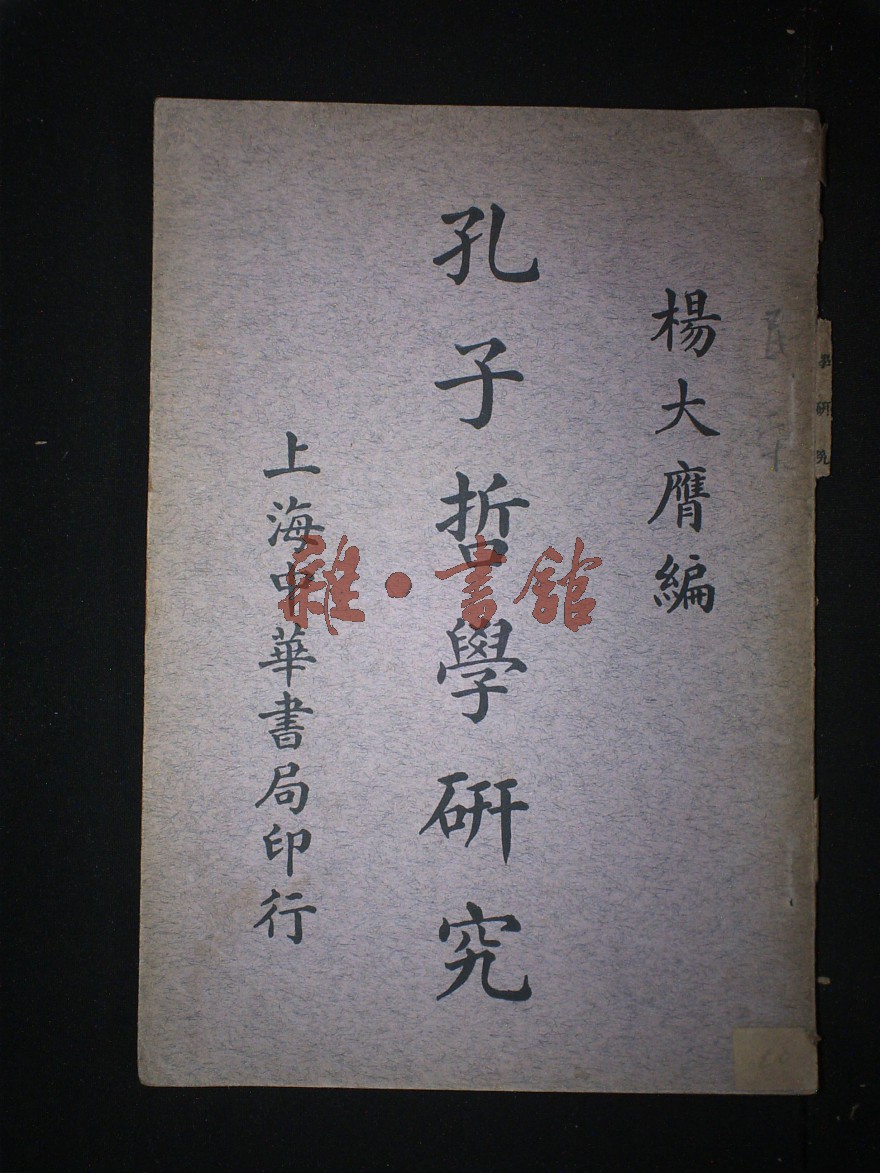 楊大膺編
孔子哲學研究
上海中華書局印行
學研究
雜·書館